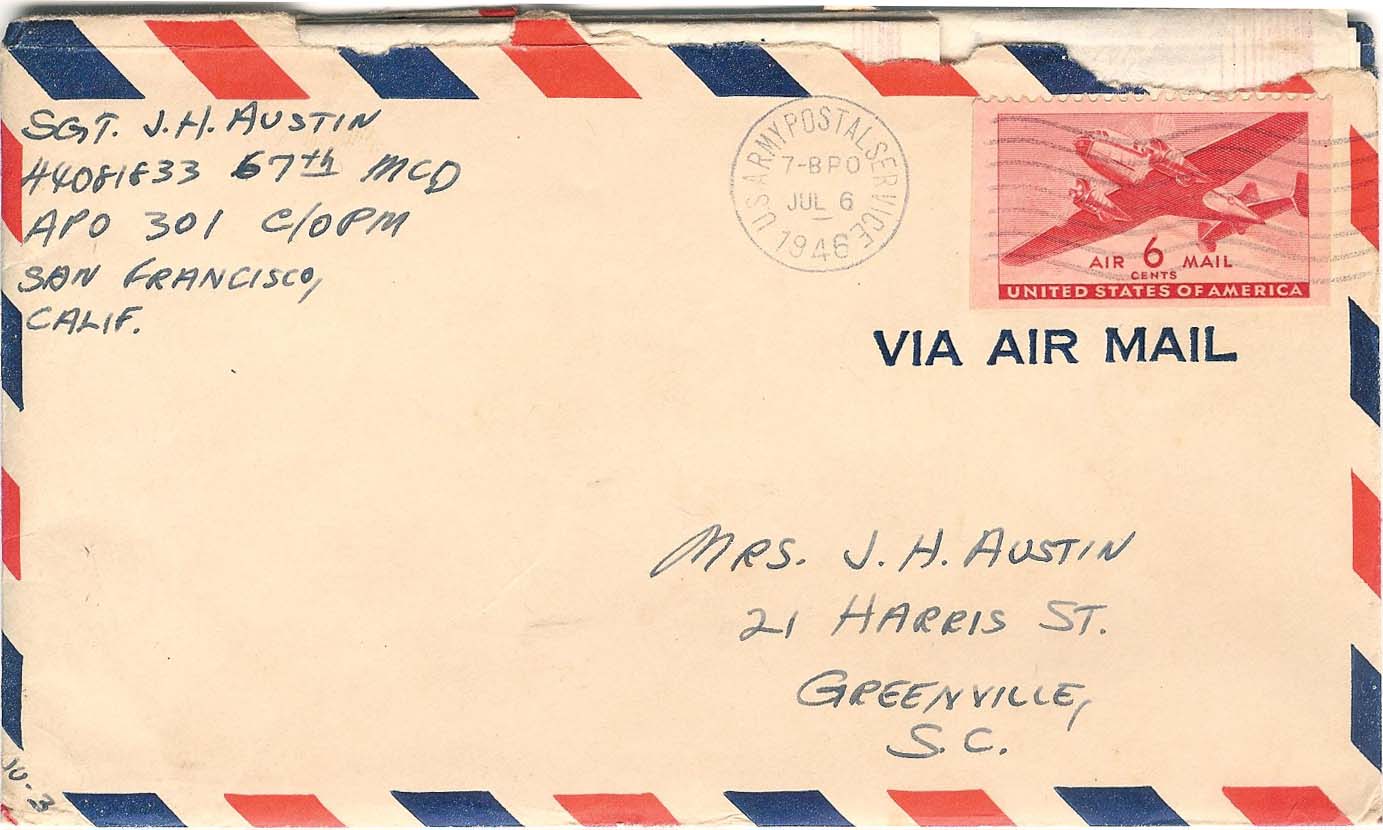 SGT. J.H. AUSTIN
44081833 67th MCD
APO 301 C/O PM
SAN FRANCISCO,
CALIF.
U.S. ARMY POSTAL SERVICE
7-BPO
JUL 6
1946
AIR 6 MAIL
CENTS
UNITED STATES OF AMERICA
VIA AIR MAIL
MRS. J. H. AUSTIN
21 HARRIS ST.
GREENVILLE,
S.C.